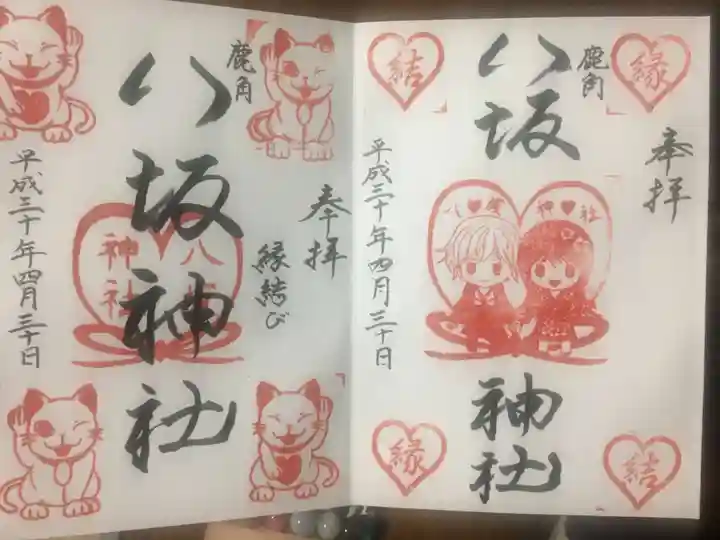 縁
結
奉拝
鹿角
八坂
神社
八坂
神社
平成三十年四月三十日
縁
結
奉拝
縁結び
鹿角
八坂神社
八坂
神社
平成三十年四月三十日